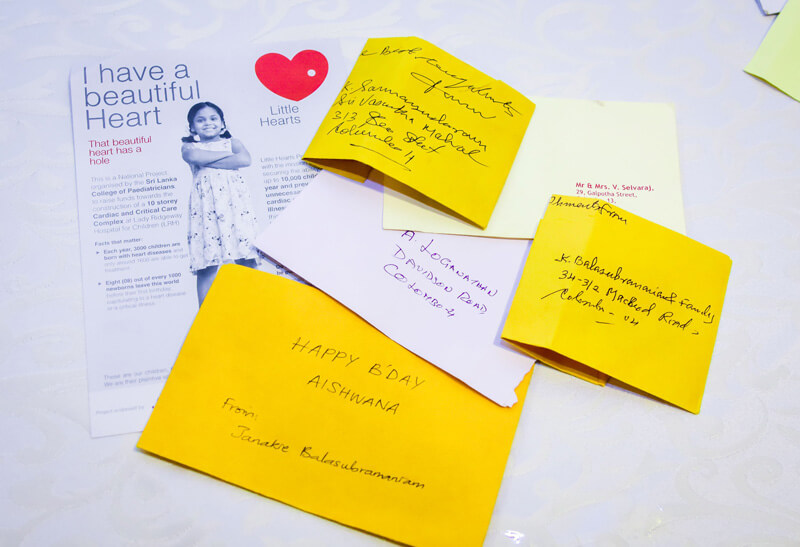 I have a
beautiful
Heart
That beautiful
heart has a
hole
This is a National Project
organised by the Sri Lanka
College of Paediatricians
to raise funds towards the
construction of a 10 storey
Cardiac and Critical Care
Complex at Lady Ridgeway
Hospital for Children (LRH)
Facts that matter:
Each year, 3000 children are
born with heart diseases and
Eight (08) out of every 1000
newborns leave this world
before their first birthday,
Little
Hearts
Little Hearts
year and
unnecessary
Best Compliments
from
Sri Vasantha Mahal
3/3 Sea Street
Mr & Mrs. V. Selvaraj,
29, Galputha Street,
13,
A. LOGANATHAN
DAVIDSON ROAD
COLOMBO-4
from
K. Balasubramaniam & Family
34-3/2 Macleod Road
Colombo - 04
HAPPY B'DAY
AISHWANA
From:
Janakie Balasubramaniam